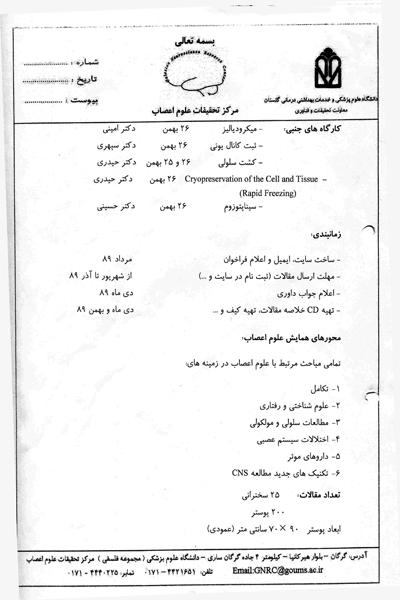 بسمه تعالی
شماره :
تاریخ :
پیوست :
Golestan Neuroscience Research Center
مرکز تحقیقات علوم اعصاب
دانشگاه علوم پزشکی و خدمات بهداشتی درمانی گلستان
معاونت تحقیقات و فناوری
کارگاه های جنبی:
- میکرودیالیز ۲۶ بهمن دکتر امینی
- ثبت کانال یونی ۲۶ بهمن دکتر سپهری
- کشت سلولی ۲۶ و ۲۵ بهمن دکتر حیدری
- Cryopreservation of the Cell and Tissue ۲۶ بهمن دکتر حیدری
(Rapid Freezing)
- سیناپتوزوم ۲۶ بهمن دکتر حسینی
زمانبندی:
- ساخت سایت، ایمیل و اعلام فراخوان مرداد ۸۹
- مهلت ارسال مقالات (ثبت نام در سایت و ...) از شهریور تا آذر ۸۹
- اعلام جواب داوری دی ماه ۸۹
- تهیه CD خلاصه مقالات، تهیه کیف و ... دی ماه و بهمن ۸۹
محورهای همایش علوم اعصاب:
تمامی مباحث مرتبط با علوم اعصاب در زمینه های:
۱- تکامل
۲- علوم شناختی و رفتاری
۳- مطالعات سلولی و مولکولی
۴- اختلالات سیستم عصبی
۵- داروهای موثر
۶- تکنیک های جدید مطالعه CNS
تعداد مقالات: ۲۵ سخنرانی
۲۰۰ پوستر
ابعاد پوستر ۹۰ × ۷۰ سانتی متر (عمودی)
آدرس: گرگان - بلوار هیرکانیا - کیلومتر ۴ جاده گرگان ساری - دانشگاه علوم پزشکی ( مجموعه فلسفی ) مرکز تحقیقات علوم اعصاب
Email:GNRC@goums.ac.ir تلفن: ۴۴۲۱۶۵۱-۰۱۷۱ نمابر: ۴۴۴۰۲۲۵-۰۱۷۱